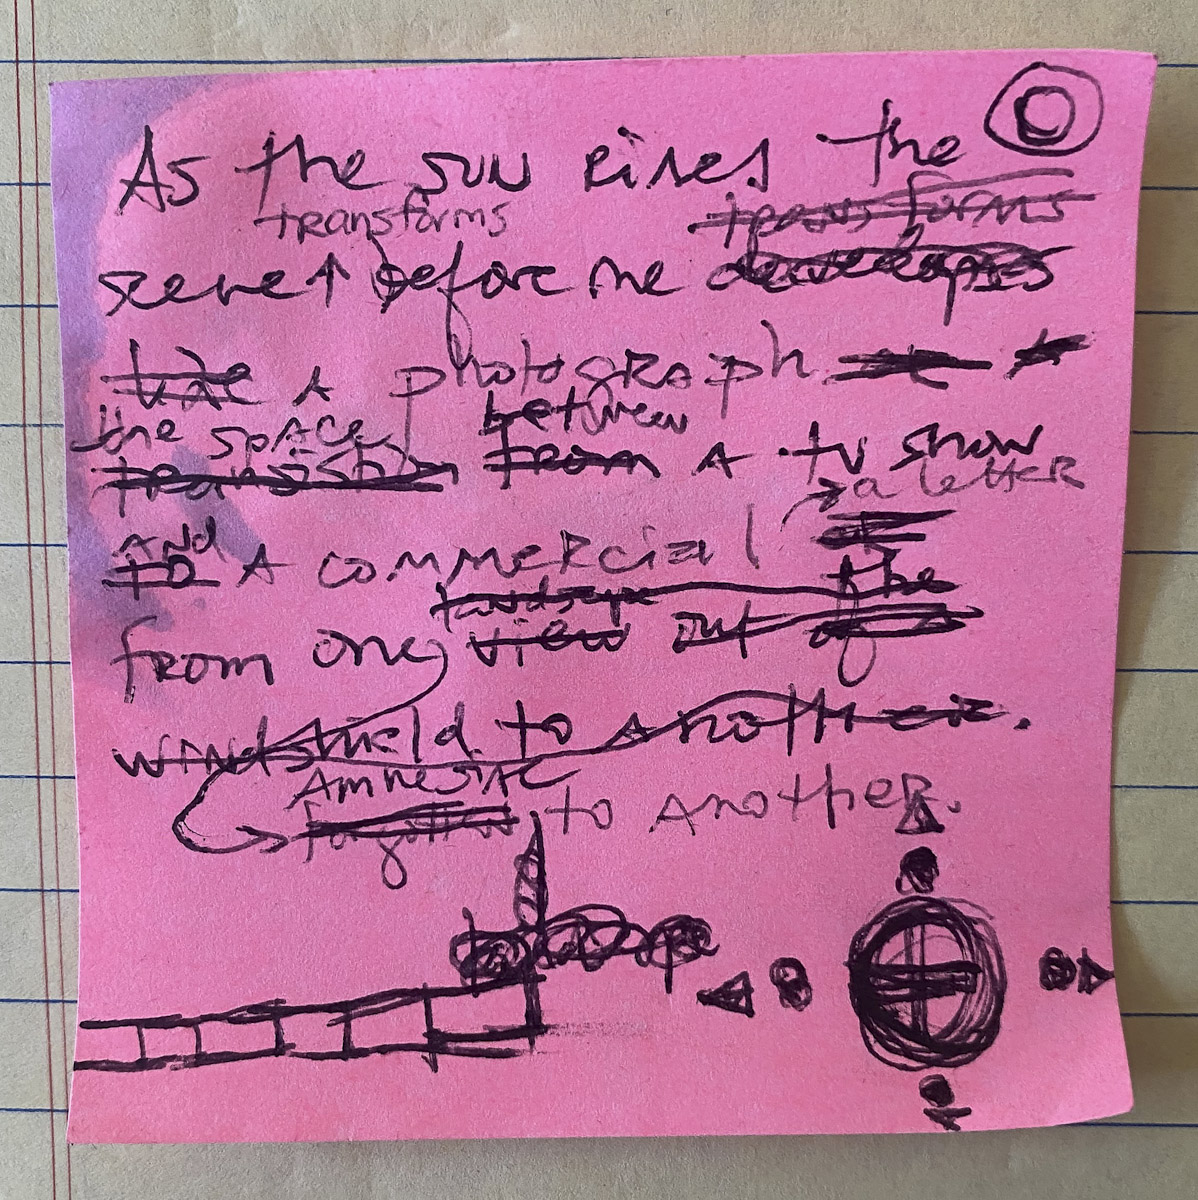 As the sun rises the
transforms transforms
scene↑ before me developes
like A photograph
the space between
transition from A tv show
a letter
and
to A commercial
the
landscape
from one view out of
windshield to Another.
Amnesiac
forgotten to Another.